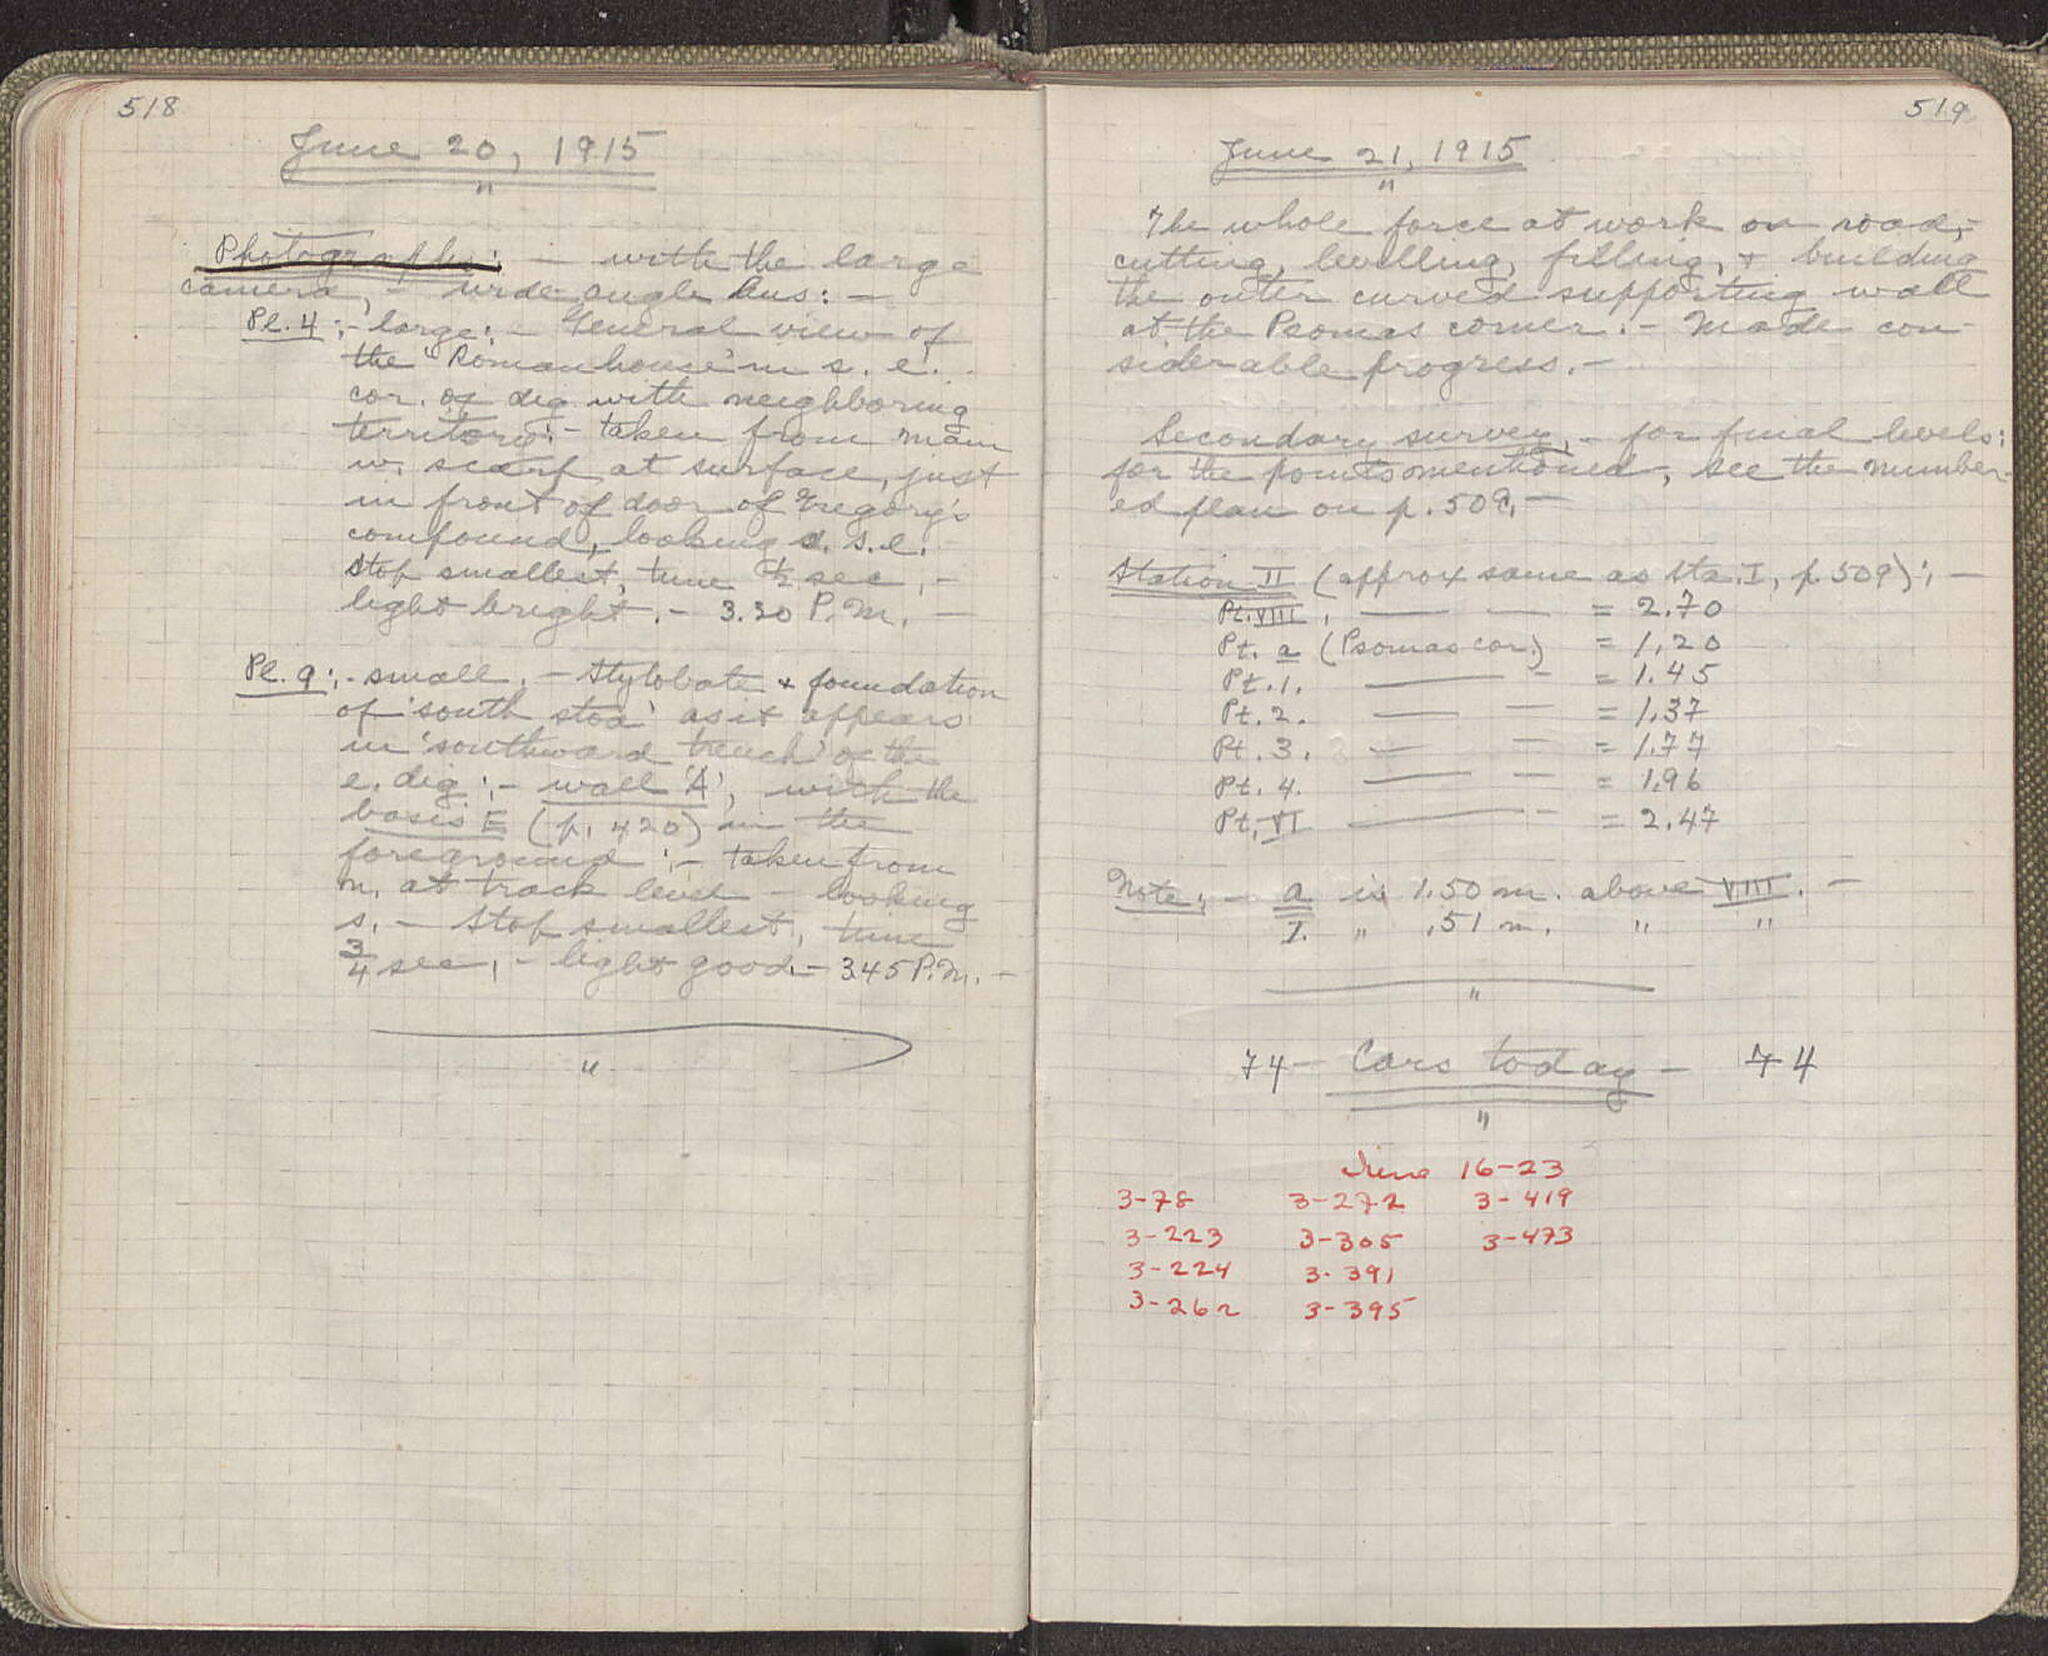 518
June 20, 1915
"
Photographs: – with the large
camera, – wide angle lens: –
Pl. 4:- large: – General view of
the 'Roman house' in s. e.
cor. of dig with neighboring
territory: – taken from main
w. scarf at surface, just
in front of door of Gregory's
compound, looking s. s. e.
Stop smallest, time 1/2 sec, –
light bright. – 3.30 P. M. –
Pl. 9:- small. – Stylobate + foundation
of 'south stoa' as it appears
in 'southward trench' of the
e. dig: – wall 'A', with the
basis E (p. 420) in the
foreground: – taken from
n. at track level – looking
s. – Stop smallest, time
3/4 sec, – light good – 3.45 P. M. –
"
519
June 21, 1915
"
The whole force at work on road, –
cutting, levelling, filling, + building
the outer curved supporting wall
at the Psomas corner. – Made con-
siderable progress. –
Secondary survey, – for final levels:
for the points mentioned, see the number-
ed plan on p. 509. –
Station II (approx same as Sta. I, p. 509): –
Pt. VIII, — — = 2.70
Pt. a (Psomas cor.) = 1.20
Pt. 1. — - = 1.45
Pt. 2. — — = 1.37
Pt. 3. — — = 1.77
Pt. 4. — — = 1.96
Pt. VI — - = 2.47
Note: – a is 1.50 m. above VIII. –
I. " .51 m. " "
"
74 – Cars today – 74
"
June 16-23
3-78 3-272 3-419
3-223 3-305 3-473
3-224 3-391
3-262 3-395